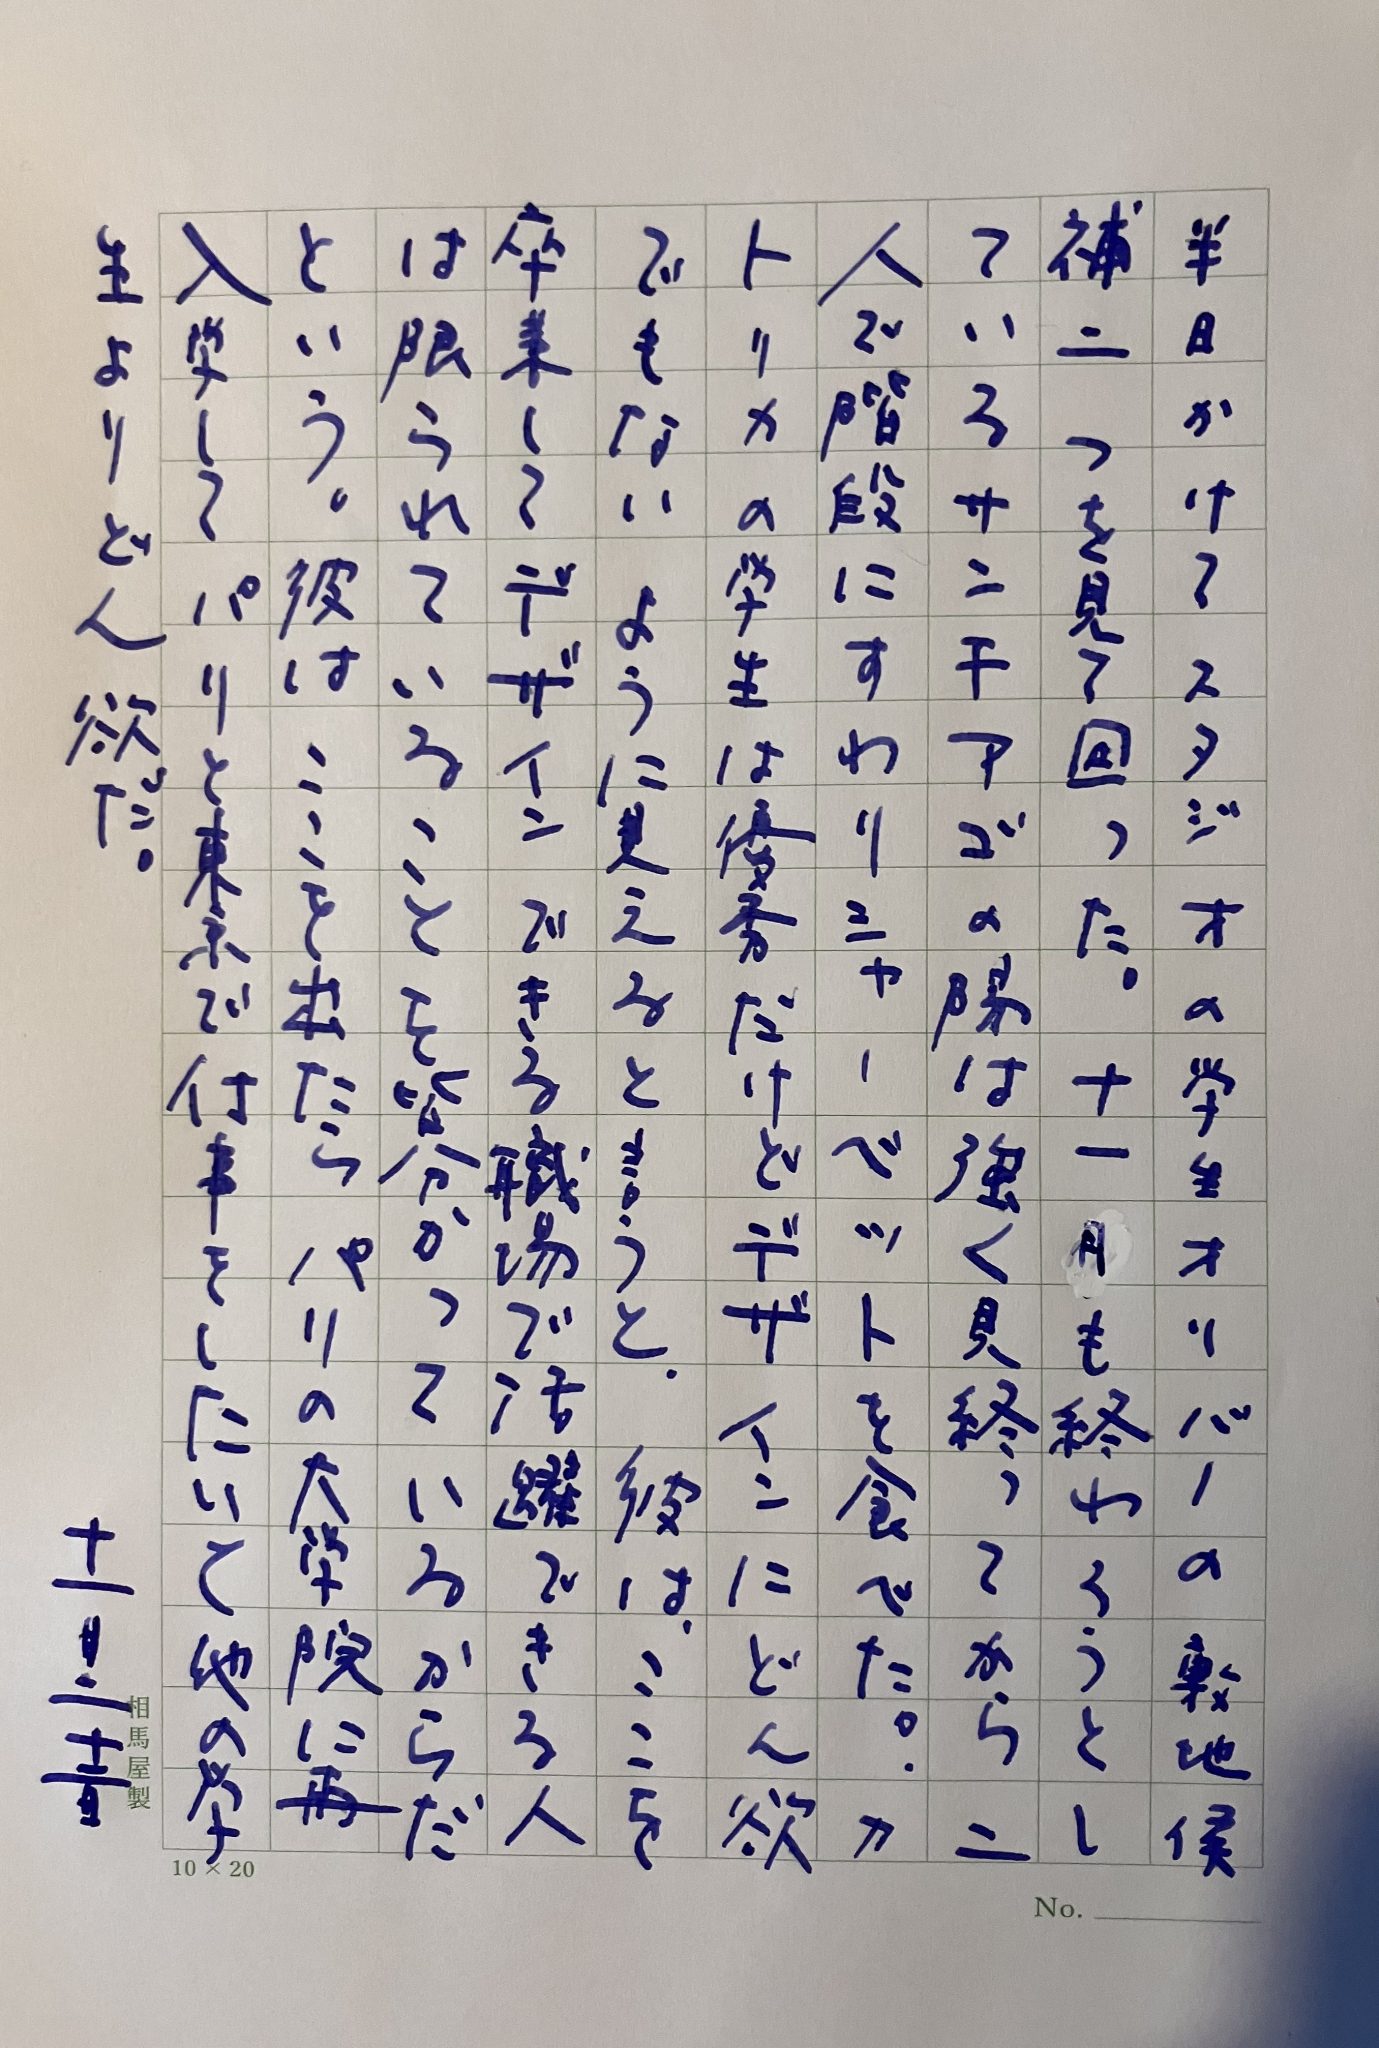 半日かけてスタジオの学生オリバーの敷地候
補二つを見て回った。十一月も終わろうとし
ているサンチアゴの陽は強く見終ってから二
人で階段にすわりシャーベットを食べた。カ
トリカの学生は優秀だけどデザインにどん欲
でもないように見えると言うと、彼は、ここを
卒業してデザインできる職場で活躍できる人
は限られていることを皆分かっているからだ
という。彼はここを出たらパリの大学院に再
入学してパリと東京で仕事をしたいて他の学
生よりどん欲だ。
十一月二十一日
相馬屋製
10×20
No.